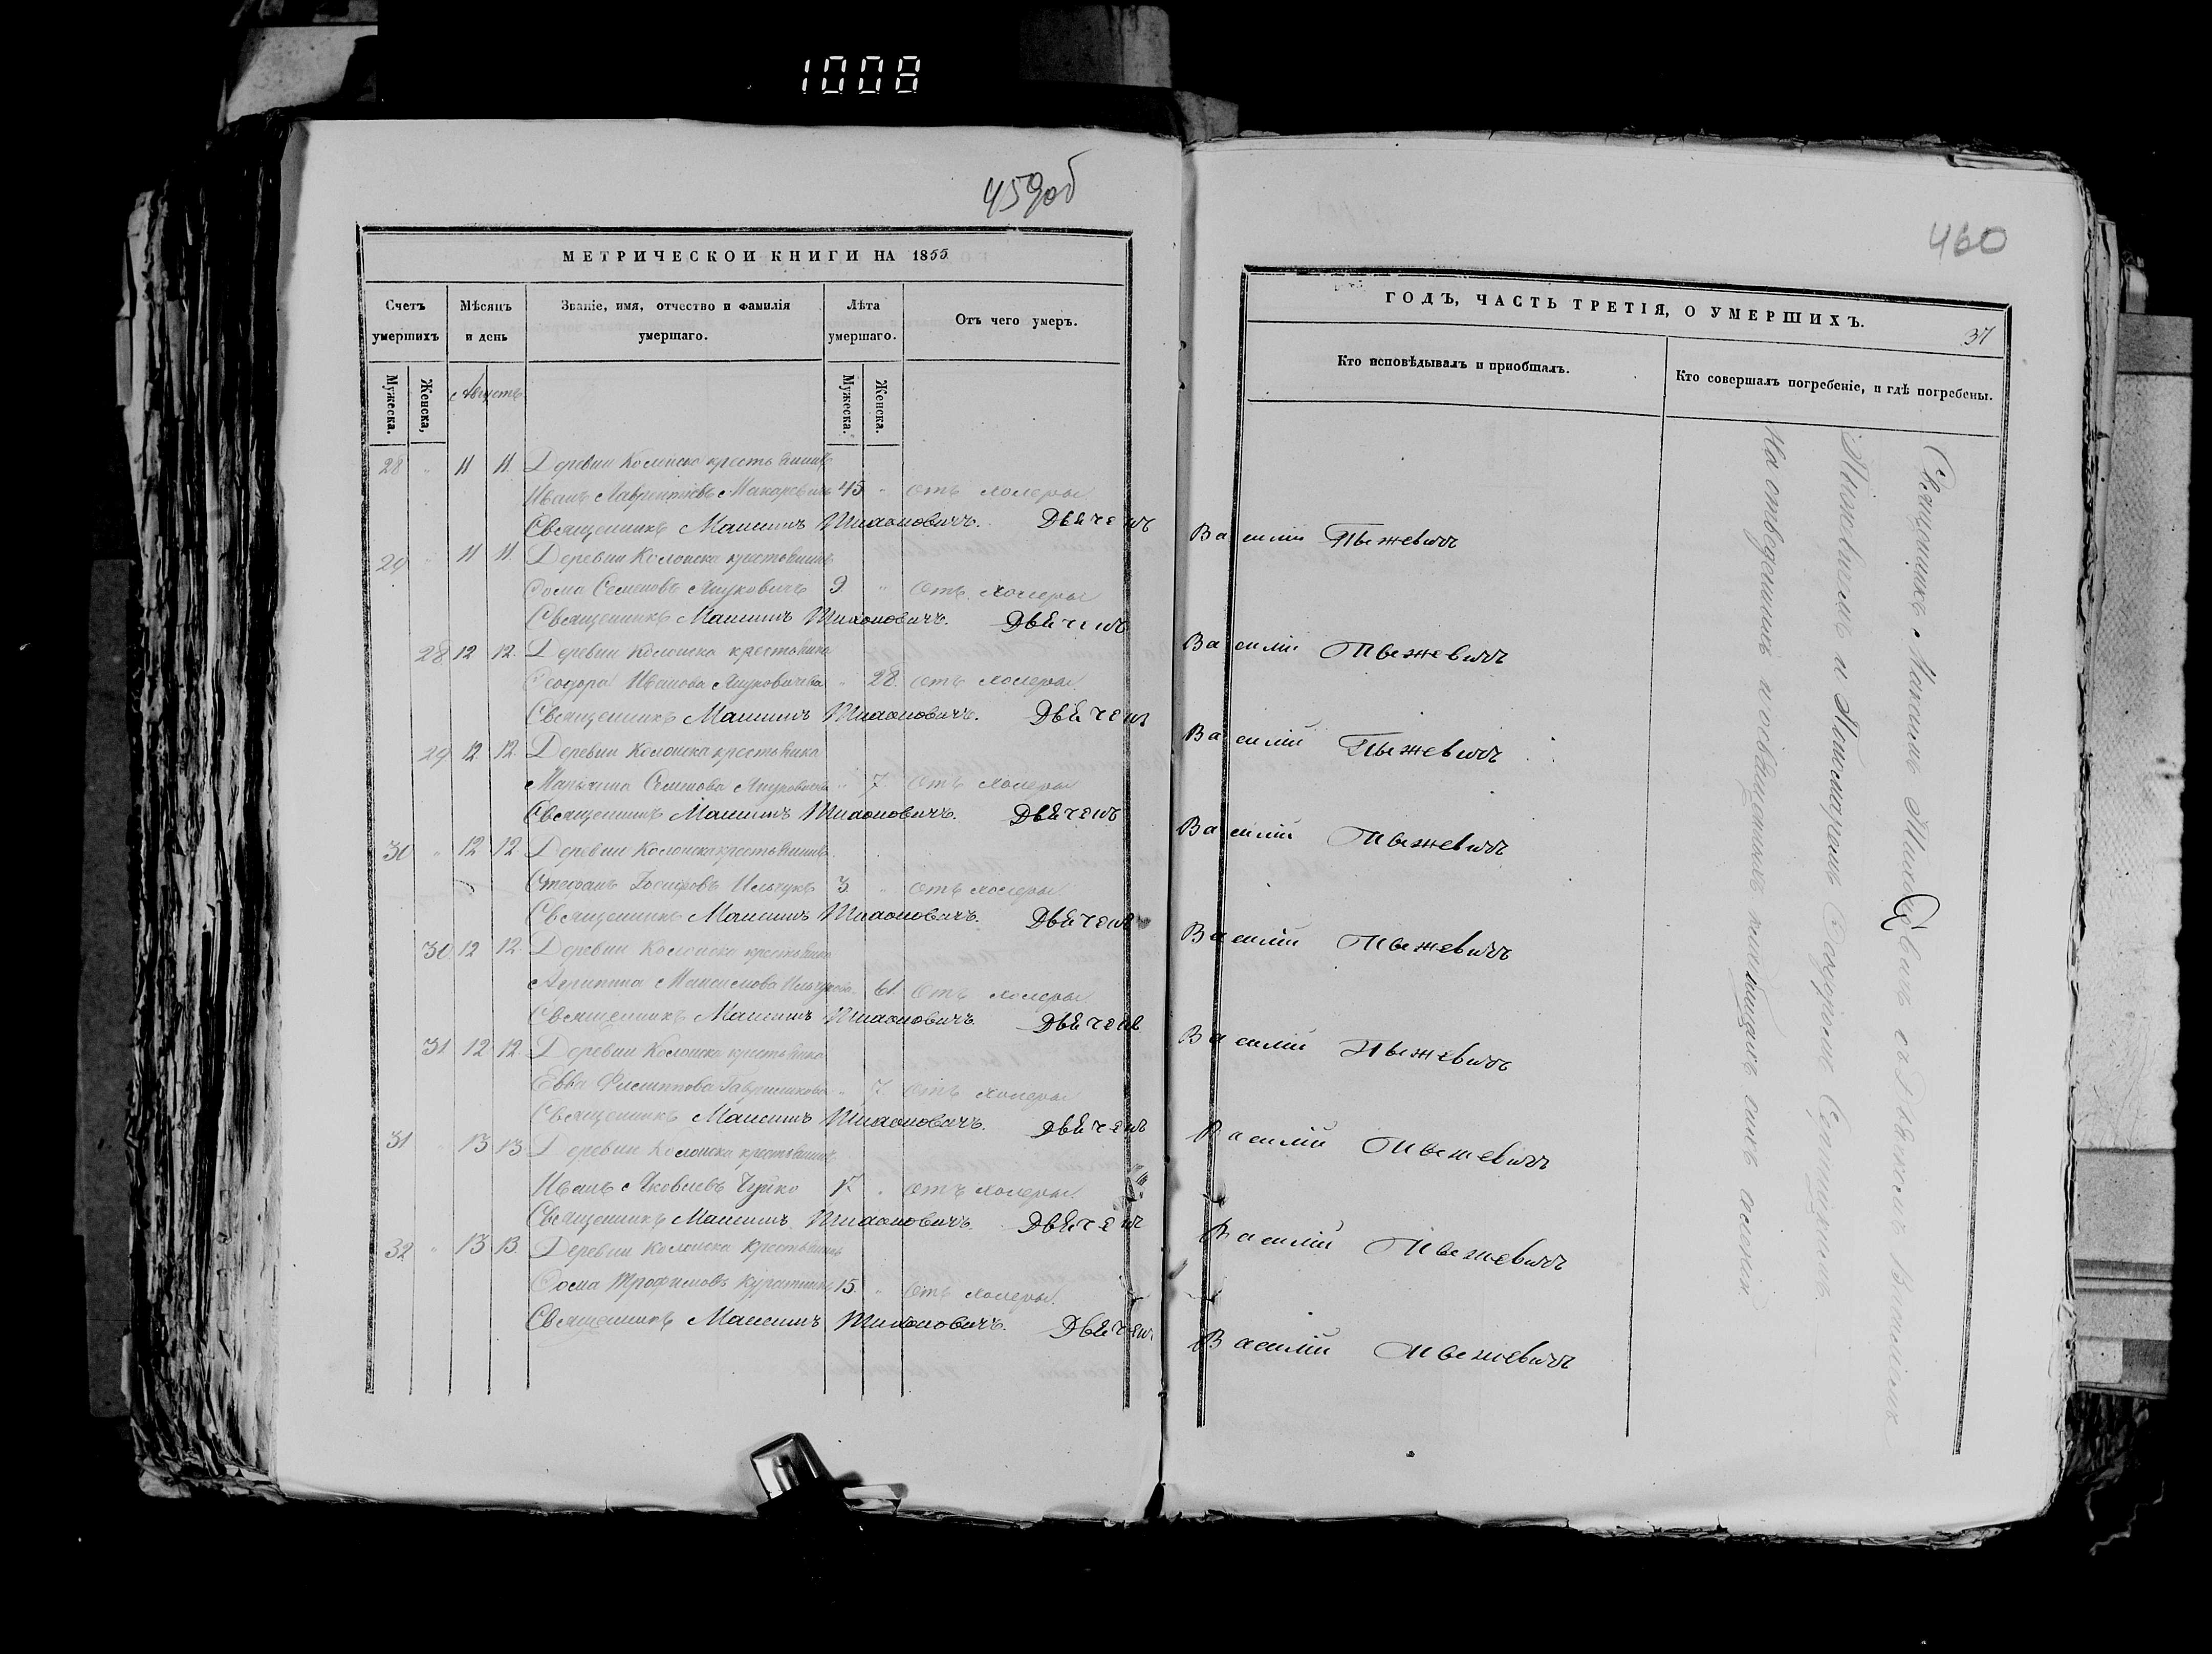 1008
459об
МЕТРИЧЕСКОЙ КНИГИ НА 1855
Счетъ умершихъ
Мѣсяцъ и день
Званіе, имя, отчество и фамилія умершаго.
Лѣта умершаго.
Отъ чего умеръ.
Мужеска.
Женска,
Августъ
Мужеска.
Женска.
28 " 11 11. Деревни Колонска крестьянинъ
Иванъ Лаврентіевъ Макаревичъ 45 " Отъ холеры
Священникъ Максимъ Тихоновичъ. Дьячекъ
29 " 11 11. Деревни Колонска крестьянинъ
Фома Семеновъ Януковичъ 9 " Отъ холеры
Священникъ Максимъ Тихоновичъ. Дьячекъ
28 12 12. Деревни Колонска крестьянка
Феодора Иванова " 28. Отъ холеры
Священникъ Максимъ Тихоновичъ. Дьячекъ
29 12 12. Деревни Колонска крестьянка
Семенова " 7. Отъ холеры
Священникъ Максимъ Тихоновичъ. Дьячекъ
30 " 12 12 Деревни Колонска крестьянинъ
Стефанъ Іосифовъ Ильчукъ 3 " Отъ холеры
Священникъ Максимъ Тихоновичъ. Дьячекъ
30 12 12. Деревни Колонска крестьянка
Максимова 61. Отъ холеры
Священникъ Максимъ Тихоновичъ. Дьячекъ
31 12 12 Деревни Колонска крестьянка
Евва Филиппова " 7. Отъ холеры
Священникъ Максимъ Тихоновичъ. Дьячекъ
31 " 13 13 Деревни Колонска крестьянинъ
Иванъ Яковлевъ Чуйко " Отъ холеры
Священникъ Максимъ Тихоновичъ. Дьячекъ
32 " 13 13. Деревни Колонска крестьянинъ
Фома Трофимовъ 15. " Отъ холеры.
Священникъ Максимъ Тихоновичъ. Дьячекъ
460
ГОДЪ, ЧАСТЬ ТРЕТІЯ, О УМЕРШИХЪ.
37
Кто исповѣдывалъ и пріобщалъ.
Кто совершалъ погребеніе, и гдѣ погребены.
Василій Пыжевичъ
Василій Пыжевичъ
Василій Пыжевичъ
Василій Пыжевичъ
Василій Пыжевичъ
Василій Пыжевичъ
Василій Пыжевичъ
Василій Пыжевичъ
Василій Пыжевичъ
Священникъ Максимъ съ Дьячкомъ Василіемъ
Пыжевичемъ и Пономаремъ
На отведенномъ и освященномъ